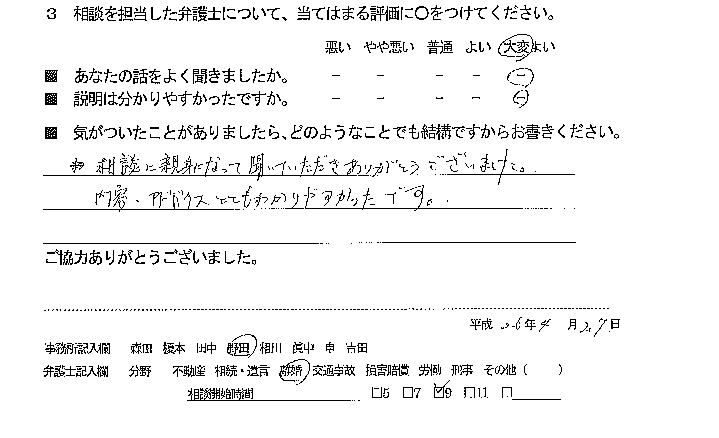 3 相談を担当した弁護士について、当てはまる評価に〇をつけてください。
悪い やや悪い 普通 よい 大変よい
あなたの話をよく聞きましたか。 － － － － －
説明は分かりやすかったですか。 － － － － －
気がついたことがありましたら、どのようなことでも結構ですからお書きください。
相談に親身になって聞いていただきありがとうございました。
内容・アドバイスとてもわかりやすかったです。
ご協力ありがとうございました。
平成 26年 4月 27日
事務所記入欄 森田 榎本 田中 勝田 相川 申 吉田
弁護士記入欄 分野 不動産 相続・遺言 離婚 交通事故 損害賠償 労働 刑事 その他（ ）
相談開始時間 □5 □7 ☑9 □11 □